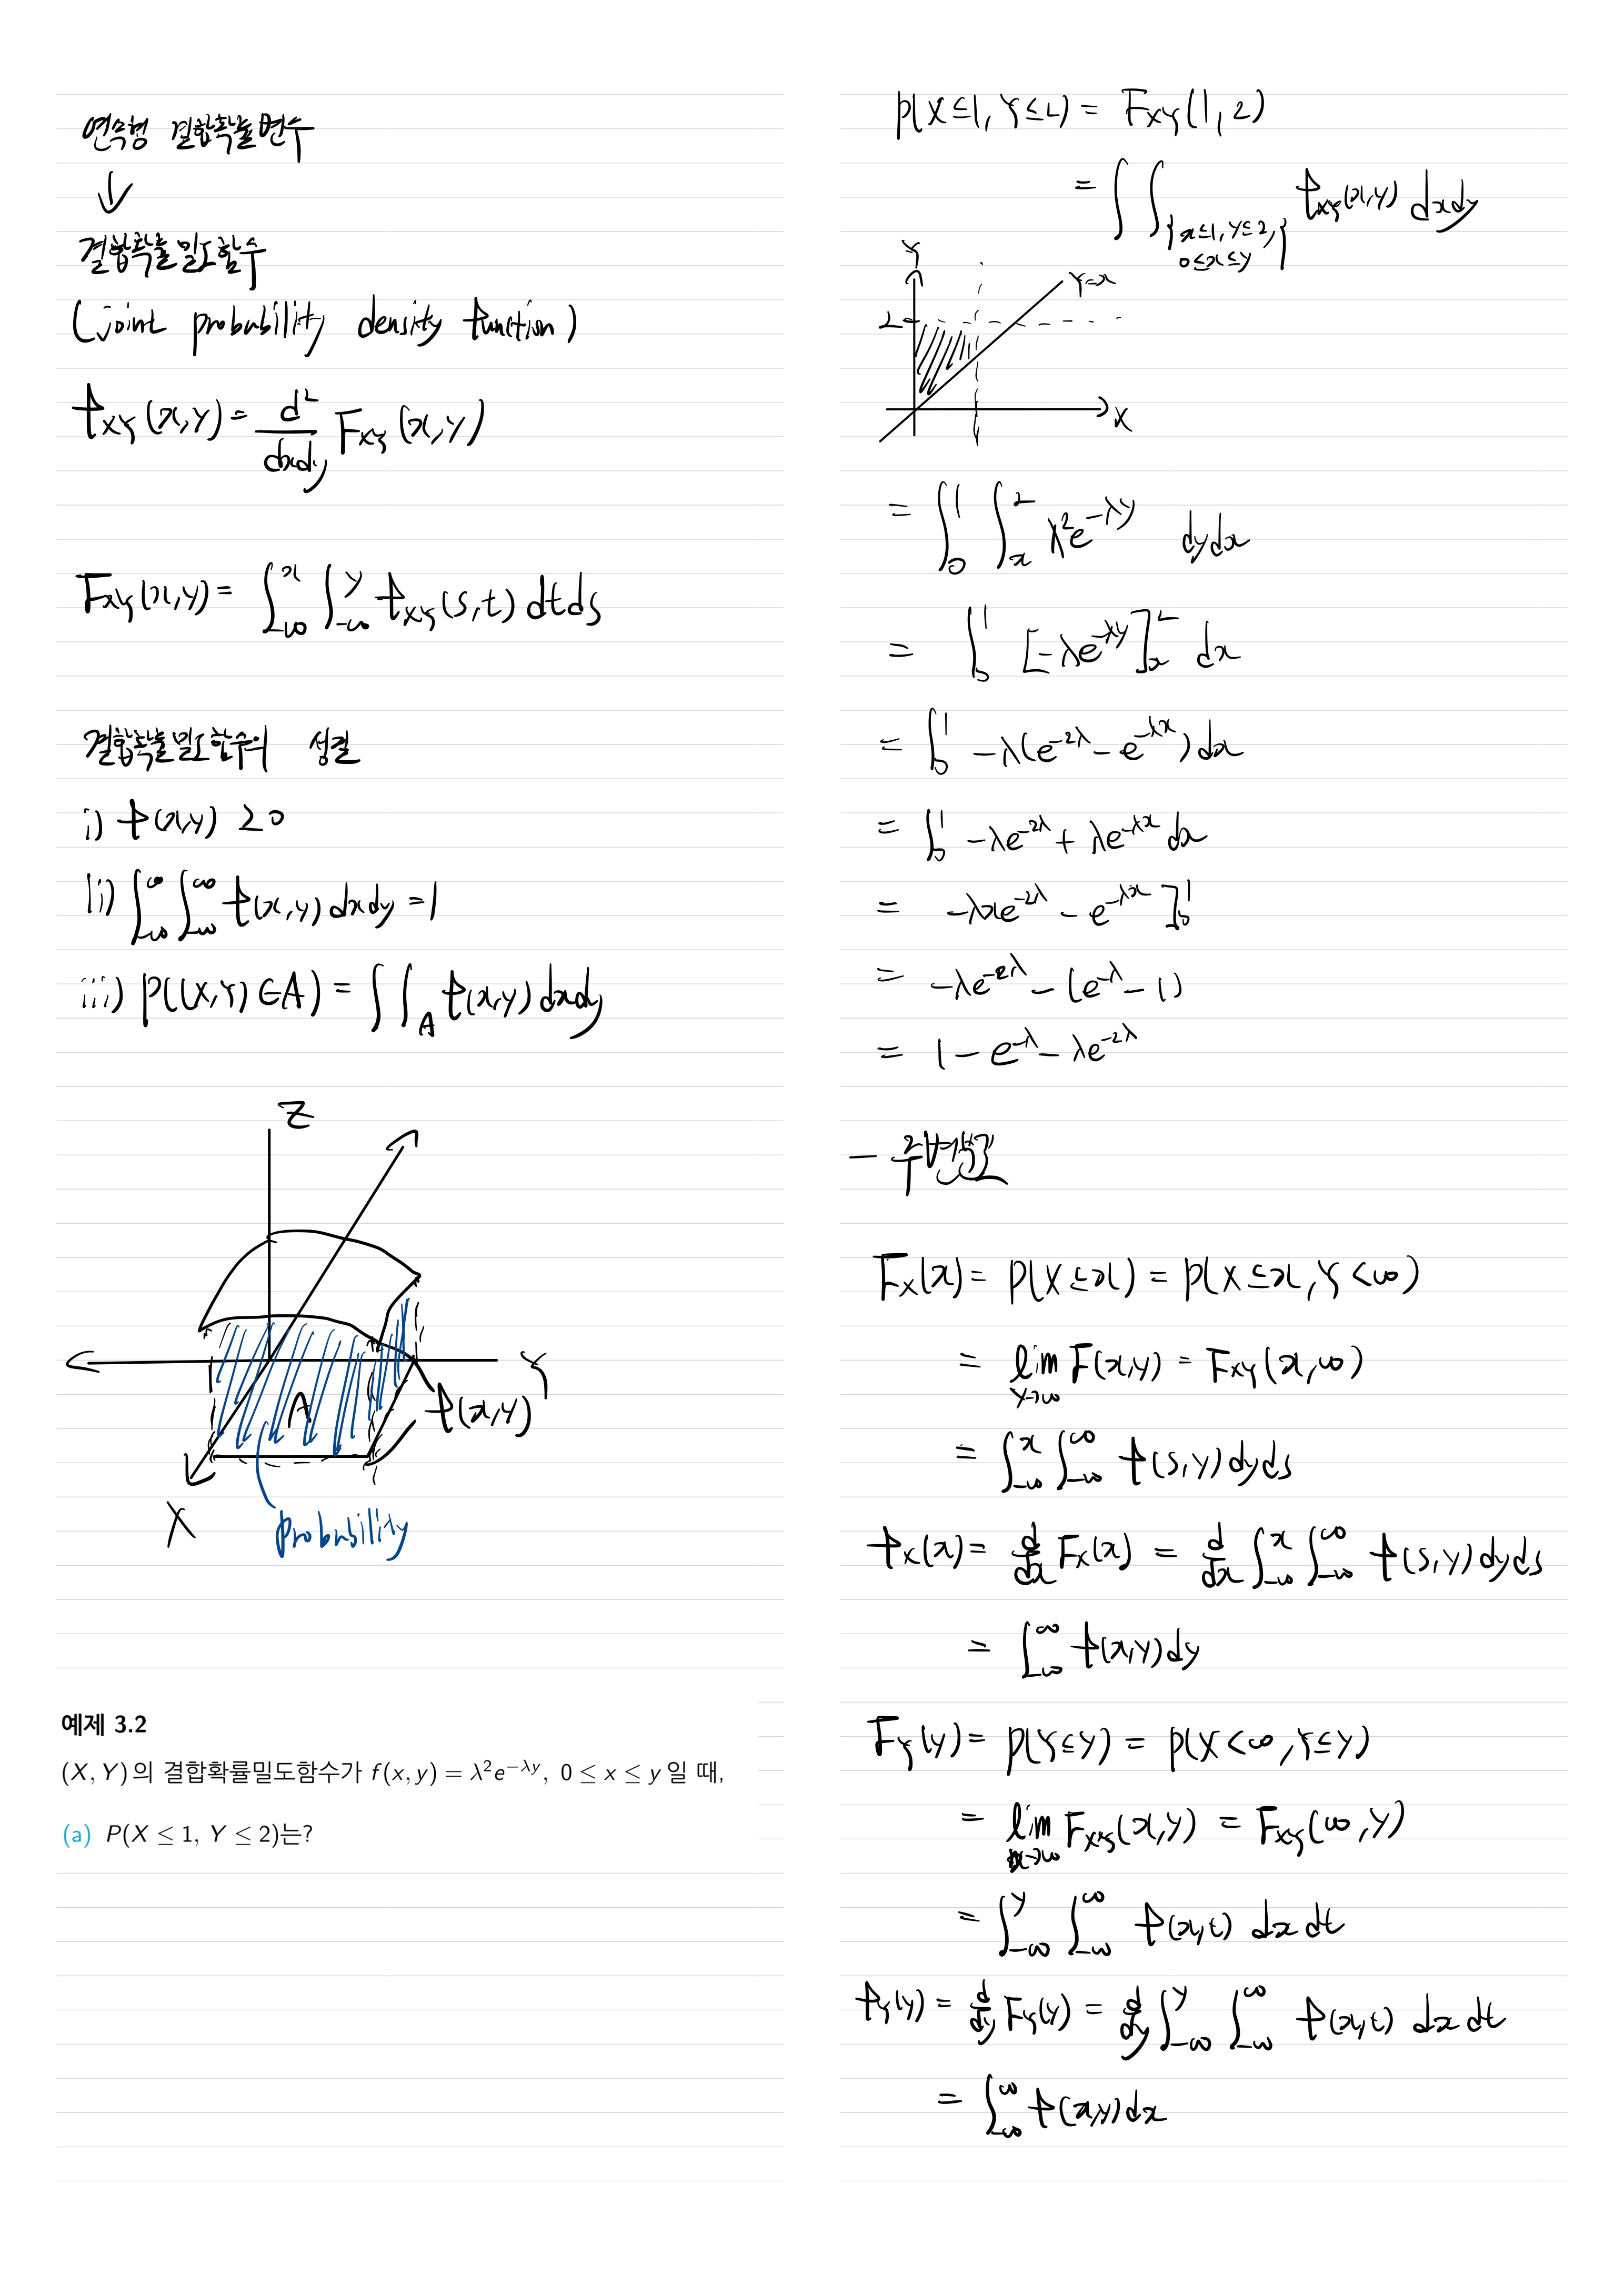 연속형 결합확률변수
↓
결합확률밀도함수
(joint probability density function)
f_XY(x,y) = d²/dxdy F_XY(x,y)
F_XY(x,y) = ∫_{-∞}^{x} ∫_{-∞}^{y} f_XY(s,t) dtds
결합확률밀도함수의 성질
i) f(x,y) ≥ 0
ii) ∫_{-∞}^{∞} ∫_{-∞}^{∞} f(x,y) dxdy = 1
iii) P((X,Y) ∈ A) = ∫∫_A f(x,y) dxdy
Z
Y
A
f(x,y)
X
probability
예제 3.2
(X, Y)의 결합확률밀도함수가 f(x, y) = λ²e^{-λy}, 0 ≤ x ≤ y 일 때,
(a) P(X ≤ 1, Y ≤ 2)는?
P(X≤1, Y≤2) = F_XY(1, 2)
= ∫∫_{{x≤1, y≤2, 0≤x≤y}} f_XY(x,y) dxdy
Y
Y=x
2
X
1
= ∫_0^1 ∫_x^2 λ²e^{-λy} dydx
= ∫_0^1 [-λe^{-λy}]_x^2 dx
= ∫_0^1 -λ(e^{-2λ} - e^{-λx}) dx
= ∫_0^1 -λe^{-2λ} + λe^{-λx} dx
= -λxe^{-2λ} - e^{-λx} ]_0^1
= -λe^{-2λ} - (e^{-λ} - 1)
= 1 - e^{-λ} - λe^{-2λ}
- 주변분포
F_X(x) = P(X≤x) = P(X≤x, Y<∞)
= lim_{y→∞} F(x,y) = F_XY(x,∞)
= ∫_{-∞}^{x} ∫_{-∞}^{∞} f(s,y) dyds
f_X(x) = d/dx F_X(x) = d/dx ∫_{-∞}^{x} ∫_{-∞}^{∞} f(s,y) dyds
= ∫_{-∞}^{∞} f(x,y) dy
F_Y(y) = P(Y≤y) = P(X<∞, Y≤y)
= lim_{x→∞} F_XY(x,y) = F_XY(∞,y)
= ∫_{-∞}^{y} ∫_{-∞}^{∞} f(x,t) dx dt
f_Y(y) = d/dy F_Y(y) = d/dy ∫_{-∞}^{y} ∫_{-∞}^{∞} f(x,t) dx dt
= ∫_{-∞}^{∞} f(x,y) dx